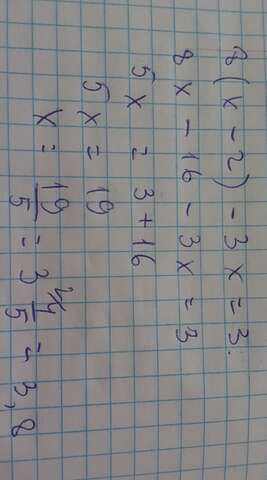 8(x - 2) - 3x = 3.
8x - 16 - 3x = 3
5x = 3 + 16
5x = 19
x = 19/5 = 3 4/5 = 3,8